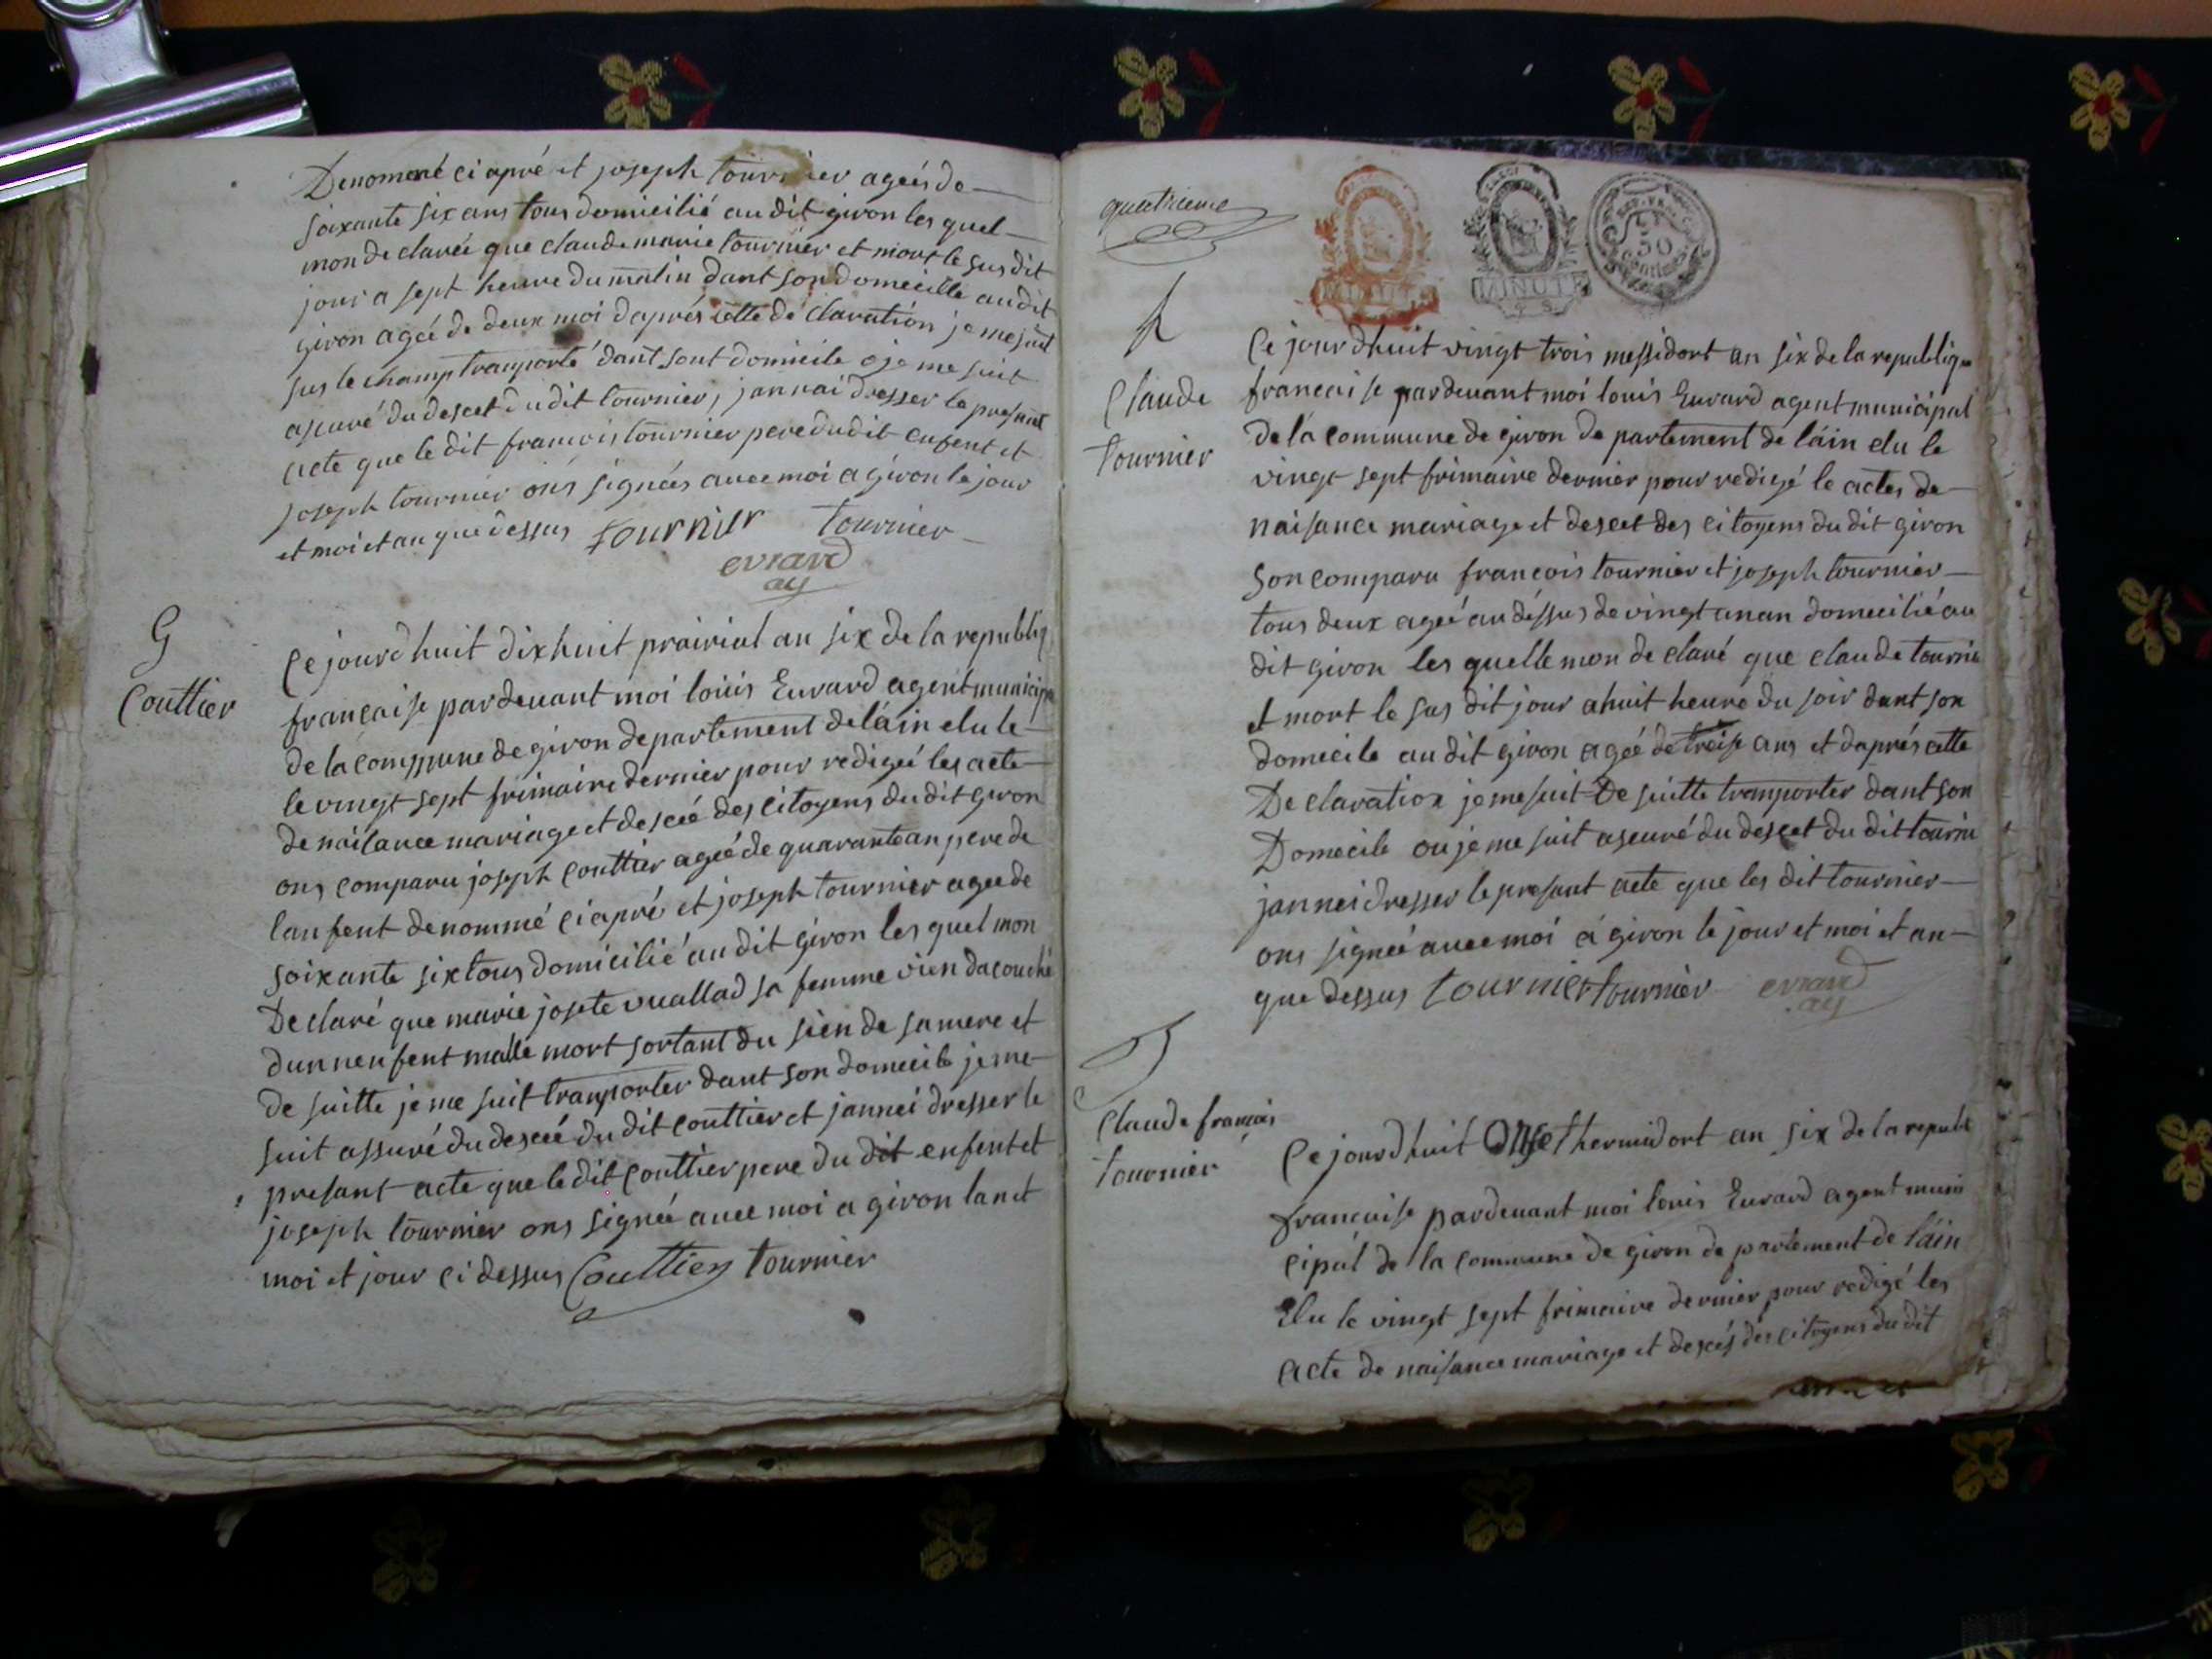 Denomené ci apré et joseph tournier ageés de
soixante six ans tous domicilié au dit giron les quel
mon de claré que claude marie tournier et mort le sus dit
jour a sept heure du matin dant son domicille au dit
giron ageé de deux moi daprés cette dé claration je me suit
sus le champ tranporté dant sont domicile o je me suit
asuré du descet du dit tournier, jannai dresser le presant
acte que le dit francois tournier pere du dit enfent et
joseph tournier ons signeés avec moi a giron le jour
et moi et an que dessus tournier tournier
evrard
ag
G
Couttier
Ce jourdhuit dixhuit prairial an six de la republiq
française pardevant moi louis Evrard agent municipa
de la commune de giron departement de láin elu le
le vingt sept frimaire dernier pour redigeé les acte
de naisance mariage et desceé des citoyens du dit giron
ons comparu joseph couttier ageé de quarante an pere de
lanfent denommé ci apré et joseph tournier ageé de
soixante six tous domicilié au dit giron les quel mon
Declaré que marie josete vuallad sa femme vien dacouché
dunnenfent malle mort sortant du sien de sa mere et
de suitte je me suit tranporter dant son domecile je me
suit assuré du desceé du dit couttier et jannei dresser le
presant acte que le dit couttier pere du dit enfent et
joseph tournier ons signeé avec moi a giron lan et
moi et jour ci dessus Couttier tournier
quatrieme
MINUTE
MINUTE
50
Centimes
Claude
tournier
Ce jourdhuit vingt trois messidort an six de la republiqu
francaise pardevant moi louis Evrard agent municipal
de la commune de giron de partement de láin elu le
vingt sept frimaire dernier pour redigé le actes de
naisance mariage et descet des citoyens du dit giron
son comparu françois tournier et joseph tournier
tous deux ageé au déssus de vingt unan domecilié au
dit giron les quelle mon de claré que claude tournie
et mort le sus dit jour a huit heure du soir dant son
domecile au dit giron ageé de treise ans et daprés cette
De claration je me suit De suitte tranporter dant son
Domecile ou je me suit aseuré du descet du dit tournie
jannei dresser le presant acte que les dit tournier
ons signeé avec moi á giron le jour et moi et an
que dessus tournier tournier evrard
ag
Claude français
tournier
Ce jourdhuit onse thermidort an six de la republ
francaise pardevant moi louis Evrard agent muni
cipal de la commune de giron de partement de láin
Elu le vingt sept frimaire dernier pour redigé les
acte de naisance mariage et descés des citoyens du dit